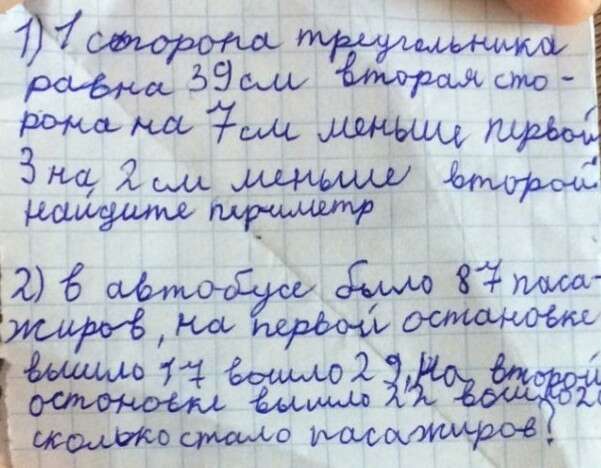 1) 1 сторона треугольника
равна 39 см вторая сто-
рона на 7 см меньше первой
3 на 2 см меньше второй
найдите периметр
2) в автобусе было 87 паса-
жиров, на первой остановке
вышло 17 вошло 29, на второй
остоновке вышло 22 вошло
сколько стало пасажиров?